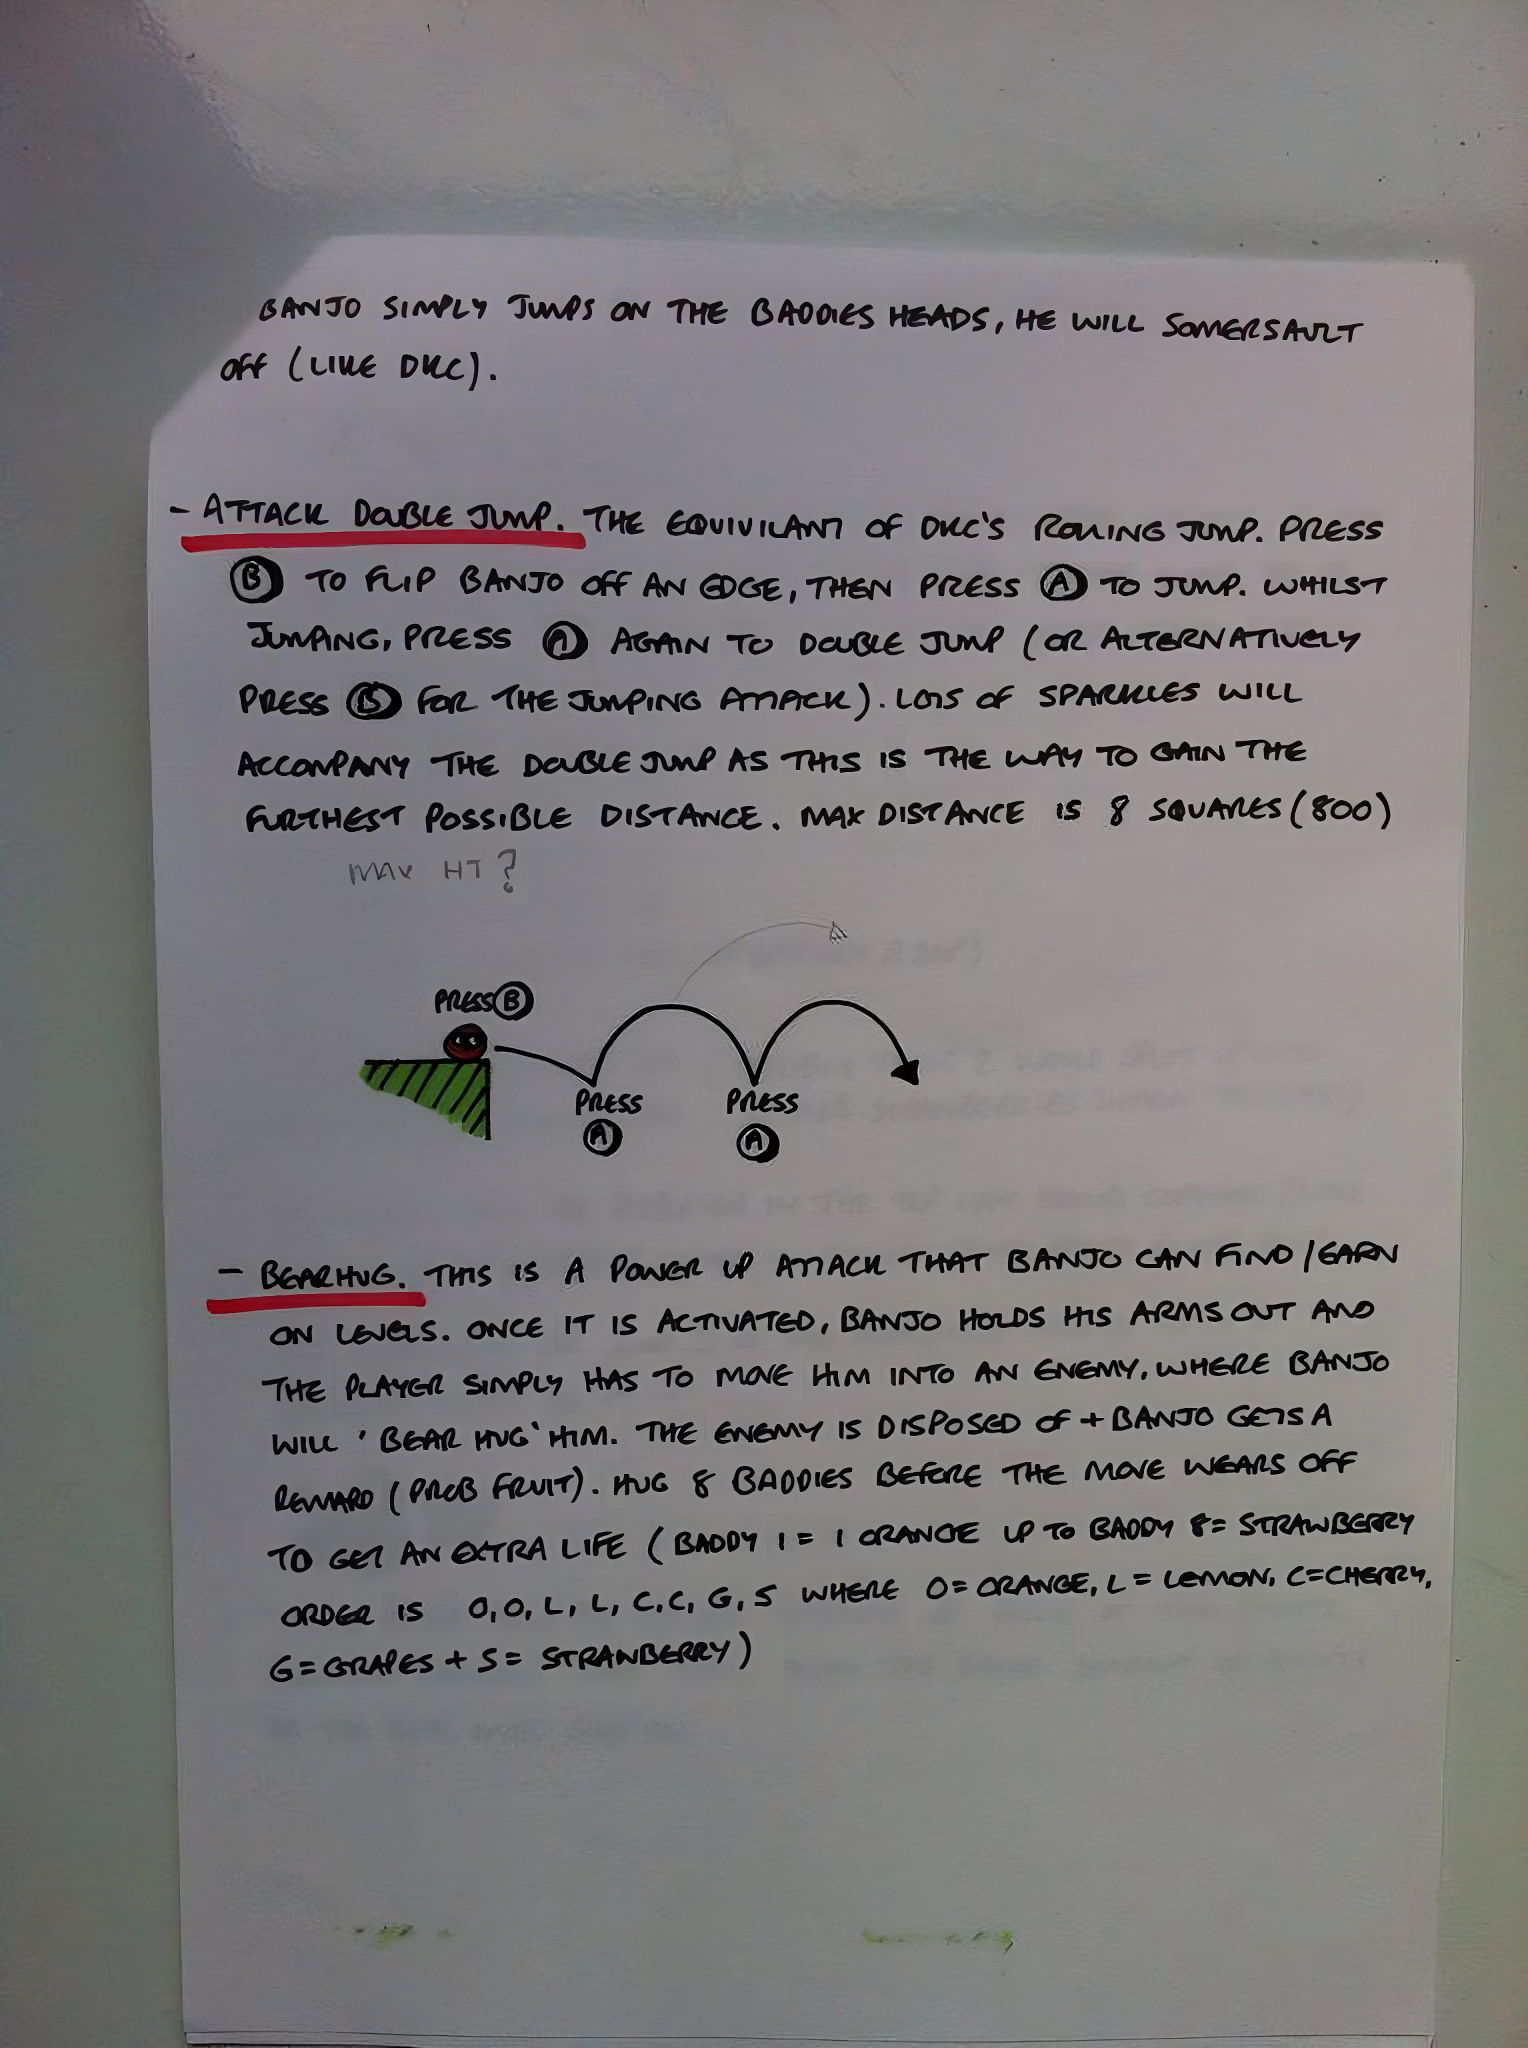 BANJO SIMPLY JUMPS ON THE BADDIES HEADS, HE WILL SOMERSAULT
OFF (LIKE DKC).
- ATTACK DOUBLE JUMP. THE EQUIVILANT OF DKC'S ROLLING JUMP. PRESS
B TO FLIP BANJO OFF AN EDGE, THEN PRESS A TO JUMP. WHILST
JUMPING, PRESS A AGAIN TO DOUBLE JUMP (OR ALTERNATIVELY
PRESS B FOR THE JUMPING ATTACK). LOTS OF SPARKLES WILL
ACCOMPANY THE DOUBLE JUMP AS THIS IS THE WAY TO GAIN THE
FURTHEST POSSIBLE DISTANCE. MAX DISTANCE IS 8 SQUARES (800)
MAX HT?
PRESS B
PRESS PRESS
A A
- BEARHUG. THIS IS A POWER UP ATTACK THAT BANJO CAN FIND/EARN
ON LEVELS. ONCE IT IS ACTIVATED, BANJO HOLDS HIS ARMS OUT AND
THE PLAYER SIMPLY HAS TO MOVE HIM INTO AN ENEMY, WHERE BANJO
WILL 'BEAR HUG' HIM. THE ENEMY IS DISPOSED OF + BANJO GETS A
REWARD (PROB FRUIT). HUG 8 BADDIES BEFORE THE MOVE WEARS OFF
TO GET AN EXTRA LIFE (BADDY 1 = 1 ORANGE UP TO BADDY 8 = STRAWBERRY
ORDER IS O, O, L, L, C, C, G, S WHERE O = ORANGE, L = LEMON, C = CHERRY,
G = GRAPES + S = STRAWBERRY)